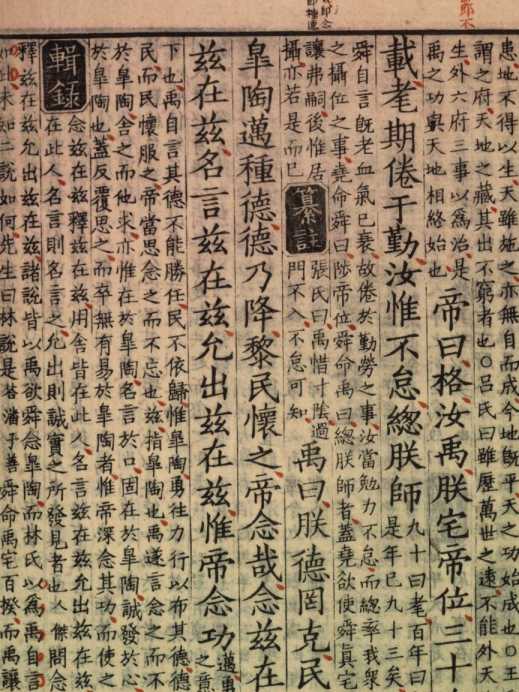 患地不得以生天雖施之亦無自而成今地既平天之功始成也○王
謂之府天地之藏其出不窮者也○呂氏曰雖歷萬世之遠不能外天
生外六府三事以爲治是
禹之功與天地相終始也
帝曰格汝禹朕宅帝位三十
載耄期倦于勤汝惟不怠總朕師
九十曰耄百年曰
是年已九十三矣
舜自言既老血氣已衰故倦於勤勞之事汝當勉力不怠而總率我衆
之攝位之事堯命舜曰陟帝位舜命禹曰總朕師者蓋堯欲使舜眞宅
讓弗嗣後惟居
攝亦若是而已
纂註
張氏曰禹惜寸陰過
門不入不怠可知
禹曰朕德罔克民
皐陶邁種德德乃降黎民懷之帝念哉念茲在
茲在茲名言茲在茲允出茲在茲惟帝念功
邁勇
之意
下也禹自言其德不能勝任民不依歸惟皐陶勇徃力行以布其德德
民而民懷服之帝當思念之而不忘也兹指皐陶也禹遂言念之而不
於皐陶舍之而他求亦惟在於皐陶名言於口固在於皐陶誠發於心
於皐陶也蓋反覆思之而卒無有易於皐陶者惟帝深念其功而使之
輯録
念兹在兹釋兹在兹用舍皆在此人名言兹在兹允出兹在兹
在此人名言則名言之允出則誠實之所發見者也人傑問念
釋兹在兹允出兹在兹諸説皆以禹欲舜念皐陶而林氏以爲禹自言
未知二説如何先生曰林説是荅潘子善舜命禹宅百揆而禹讓